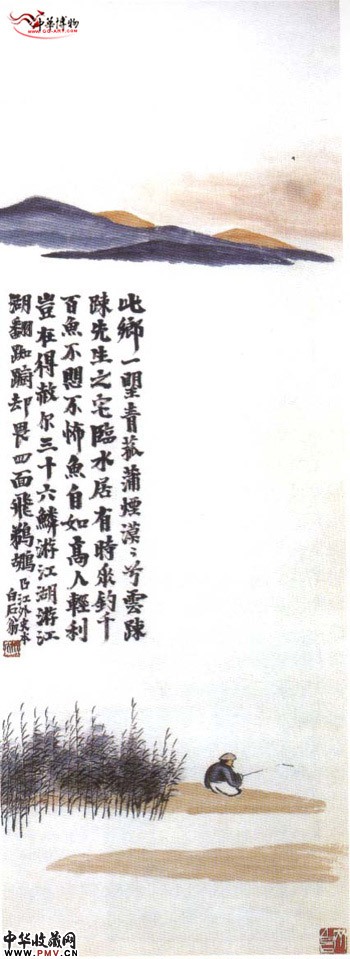 中華博物
WWW.GG-ART.COM
此鄉一望青菰蒲煙漠〻兮雲踈
踈先生之宅臨水居有時垂釣千
百魚不不怖魚自如高人輕利
豈在得赦尔三十六鱗游江湖游江
湖翻踟蹰却畏四面飛鵜鶘
白石翁
中华收藏网
www.PMV.CN